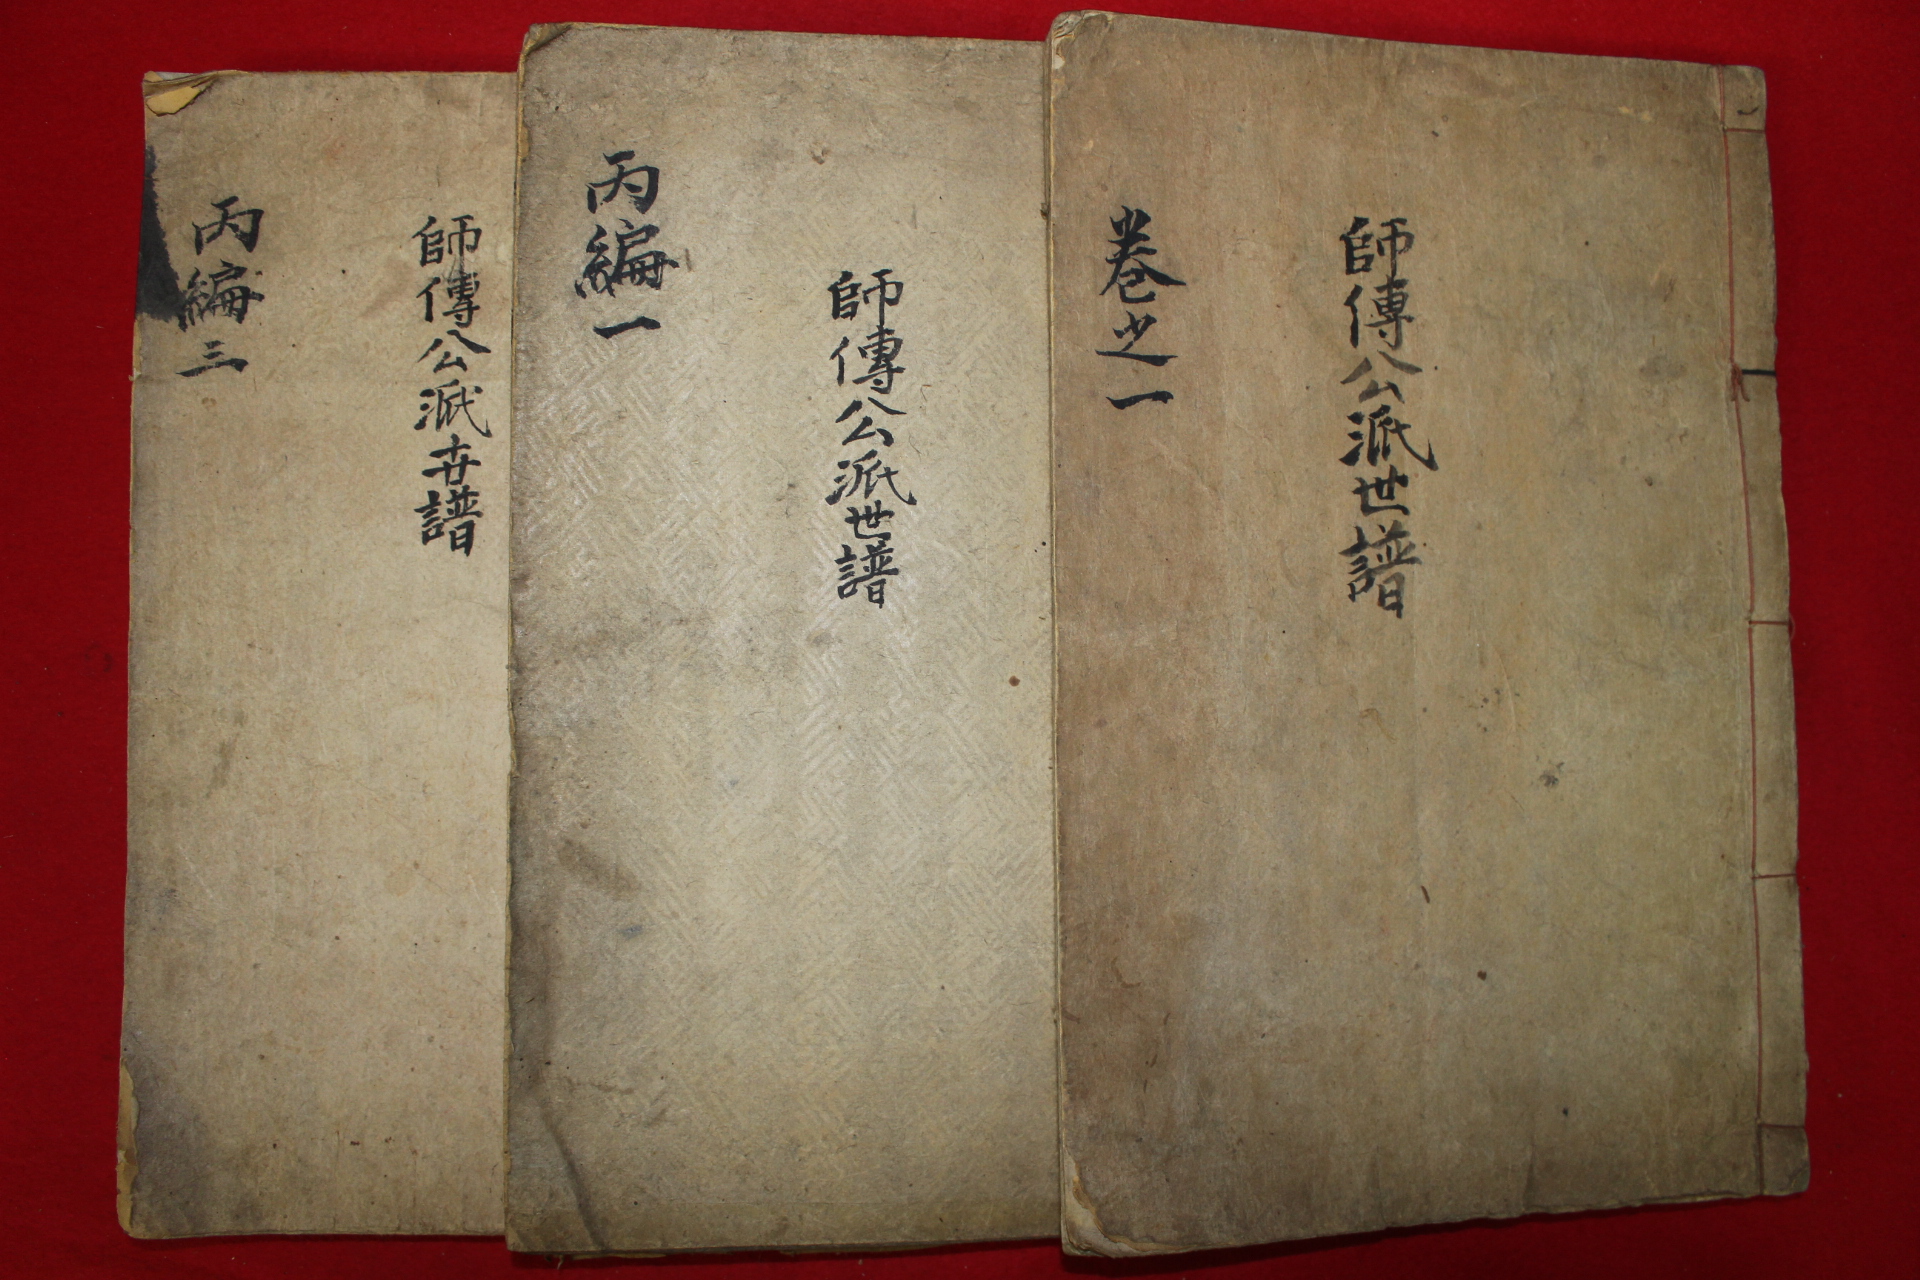 師傳公派世譜
卷之一
師傳公派世譜
丙編一
師傳公派世譜
丙編三